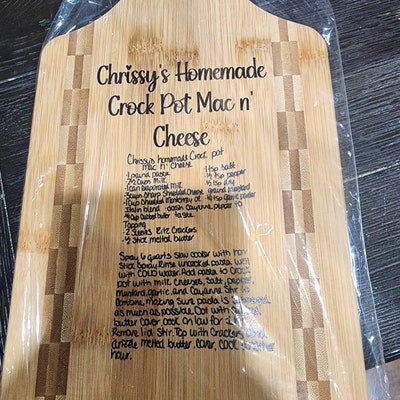 Chrissy's Homemade
Crock Pot Mac n'
Cheese
Chrissy's homemade Crock pot
mac n' cheese
1 pound pasta
1 tsp salt
2½ cups milk
½ tsp pepper
1 can evaporated milk
½ tsp dry
3 cups Sharp Shredded Cheese
ground mustard
1 cup Shredded Monterey or
garlic powder
Italin blend
dash Cayenne pepper to
¼ cup Cubbed butter
taste
Topping
2 Sleeves Ritz Crackers
½ Stick melted butter
Spray 6 quarts Slow cooker with non
Stick Spray. Rinse uncooked pasta well
with cold water. Add pasta to Crock
pot with milk, cheeses, Salt, pepper,
mustard, garlic, and Cayanne. Stir to
Combine, making Sure pasta is
as much as possible. Dot with
butter. Cover. Cook on low for
Remove lid. Stir. Top with Crackers and
drizzle melted butter. Cover, Cook another
hour.